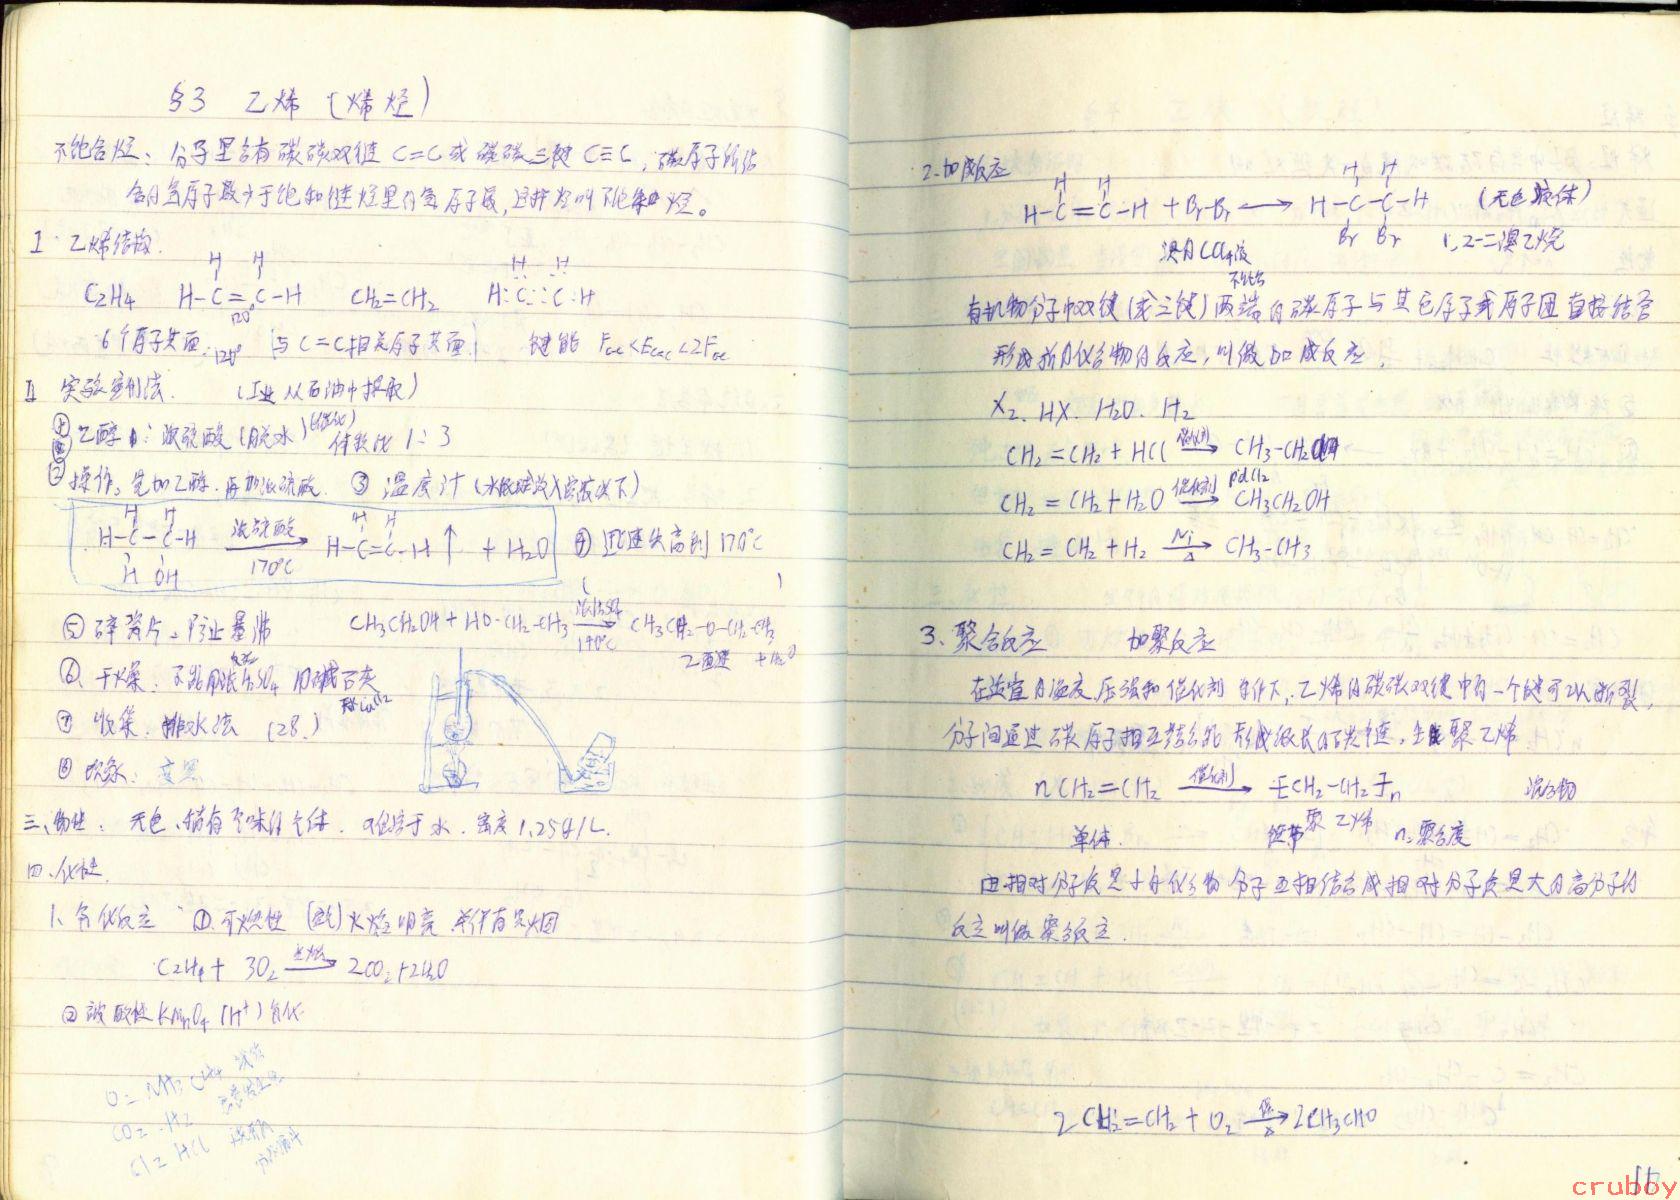 §3 乙烯 (烯烃)
不饱和烃: 分子里含有碳碳双键 C=C 或碳碳三键 C≡C, 碳原子所结
合的氢原子数少于饱和链烃里的氢原子数, 这种烃叫不饱和烃。
I. 乙烯结构.
H H H H
C2H4 H-C=C-H CH2=CH2 H:C::C:H
120°
6个原子共面. 120° (与C=C相关原子共面) 键能
II 实验室制法. (工业从石油中提取)
① 乙醇: 浓硫酸 (脱水) 体积比 1:3
② 操作: 先加乙醇, 再加浓硫酸. ③ 温度计 (水银球放入液面以下)
H H H H
H-C-C-H 浓硫酸 170℃ H-C=C-H ↑ + H2O ④ 迅速升高到170℃
H OH
⑤ 碎瓷片, 防止暴沸 CH3CH2OH + HO-CH2-CH3 浓H2SO4 140℃ CH3CH2-O-CH2-CH3
乙醚 + H2O
⑥ 干燥: 不能用浓H2SO4 用碱石灰
CaCl2
⑦ 收集: 排水法 (28.)
⑧ 现象: 变黑
三、物性: 无色, 稍有气味的气体. 难溶于水. 密度 1.25g/L.
四、化性.
1. 氧化反应 ①. 可燃性 火焰明亮 并伴有黑烟
C2H4 + 3O2 点燃 → 2CO2 + 2H2O
② 被酸性KMnO4 (H+) 氧化
O2 NH3 CH4
CO2 H2
Cl2 HCl
分液漏斗
2. 加成反应
H H H H
H-C=C-H + Br-Br → H-C-C-H (无色液体)
Br Br 1,2-二溴乙烷
溴的CCl4液
不饱和
有机物分子中双键(或三键)两端的碳原子与其它原子或原子团直接结合
形成新的化合物的反应, 叫做加成反应.
X2. HX. H2O. H2
CH2=CH2 + HCl 催化剂 → CH3-CH2Cl
CH2=CH2 + H2O 催化剂 → CH3CH2OH
CH2=CH2 + H2 Ni △ → CH3-CH3
3. 聚合反应 加聚反应
在适宜的温度、压强和催化剂条件下, 乙烯的碳碳双键中有一个键可以断裂,
分子间通过碳原子相互结合能形成很长的碳链, 生成聚乙烯
nCH2=CH2 催化剂 → [CH2-CH2]n 混合物
单体. 链节 聚乙烯 n: 聚合度
由相对分子质量小的化合物分子互相结合成相对分子质量大的高分子的
反应叫做聚合反应.
2CH2=CH2 + O2 催 △ → 2CH3CHO
cruboy